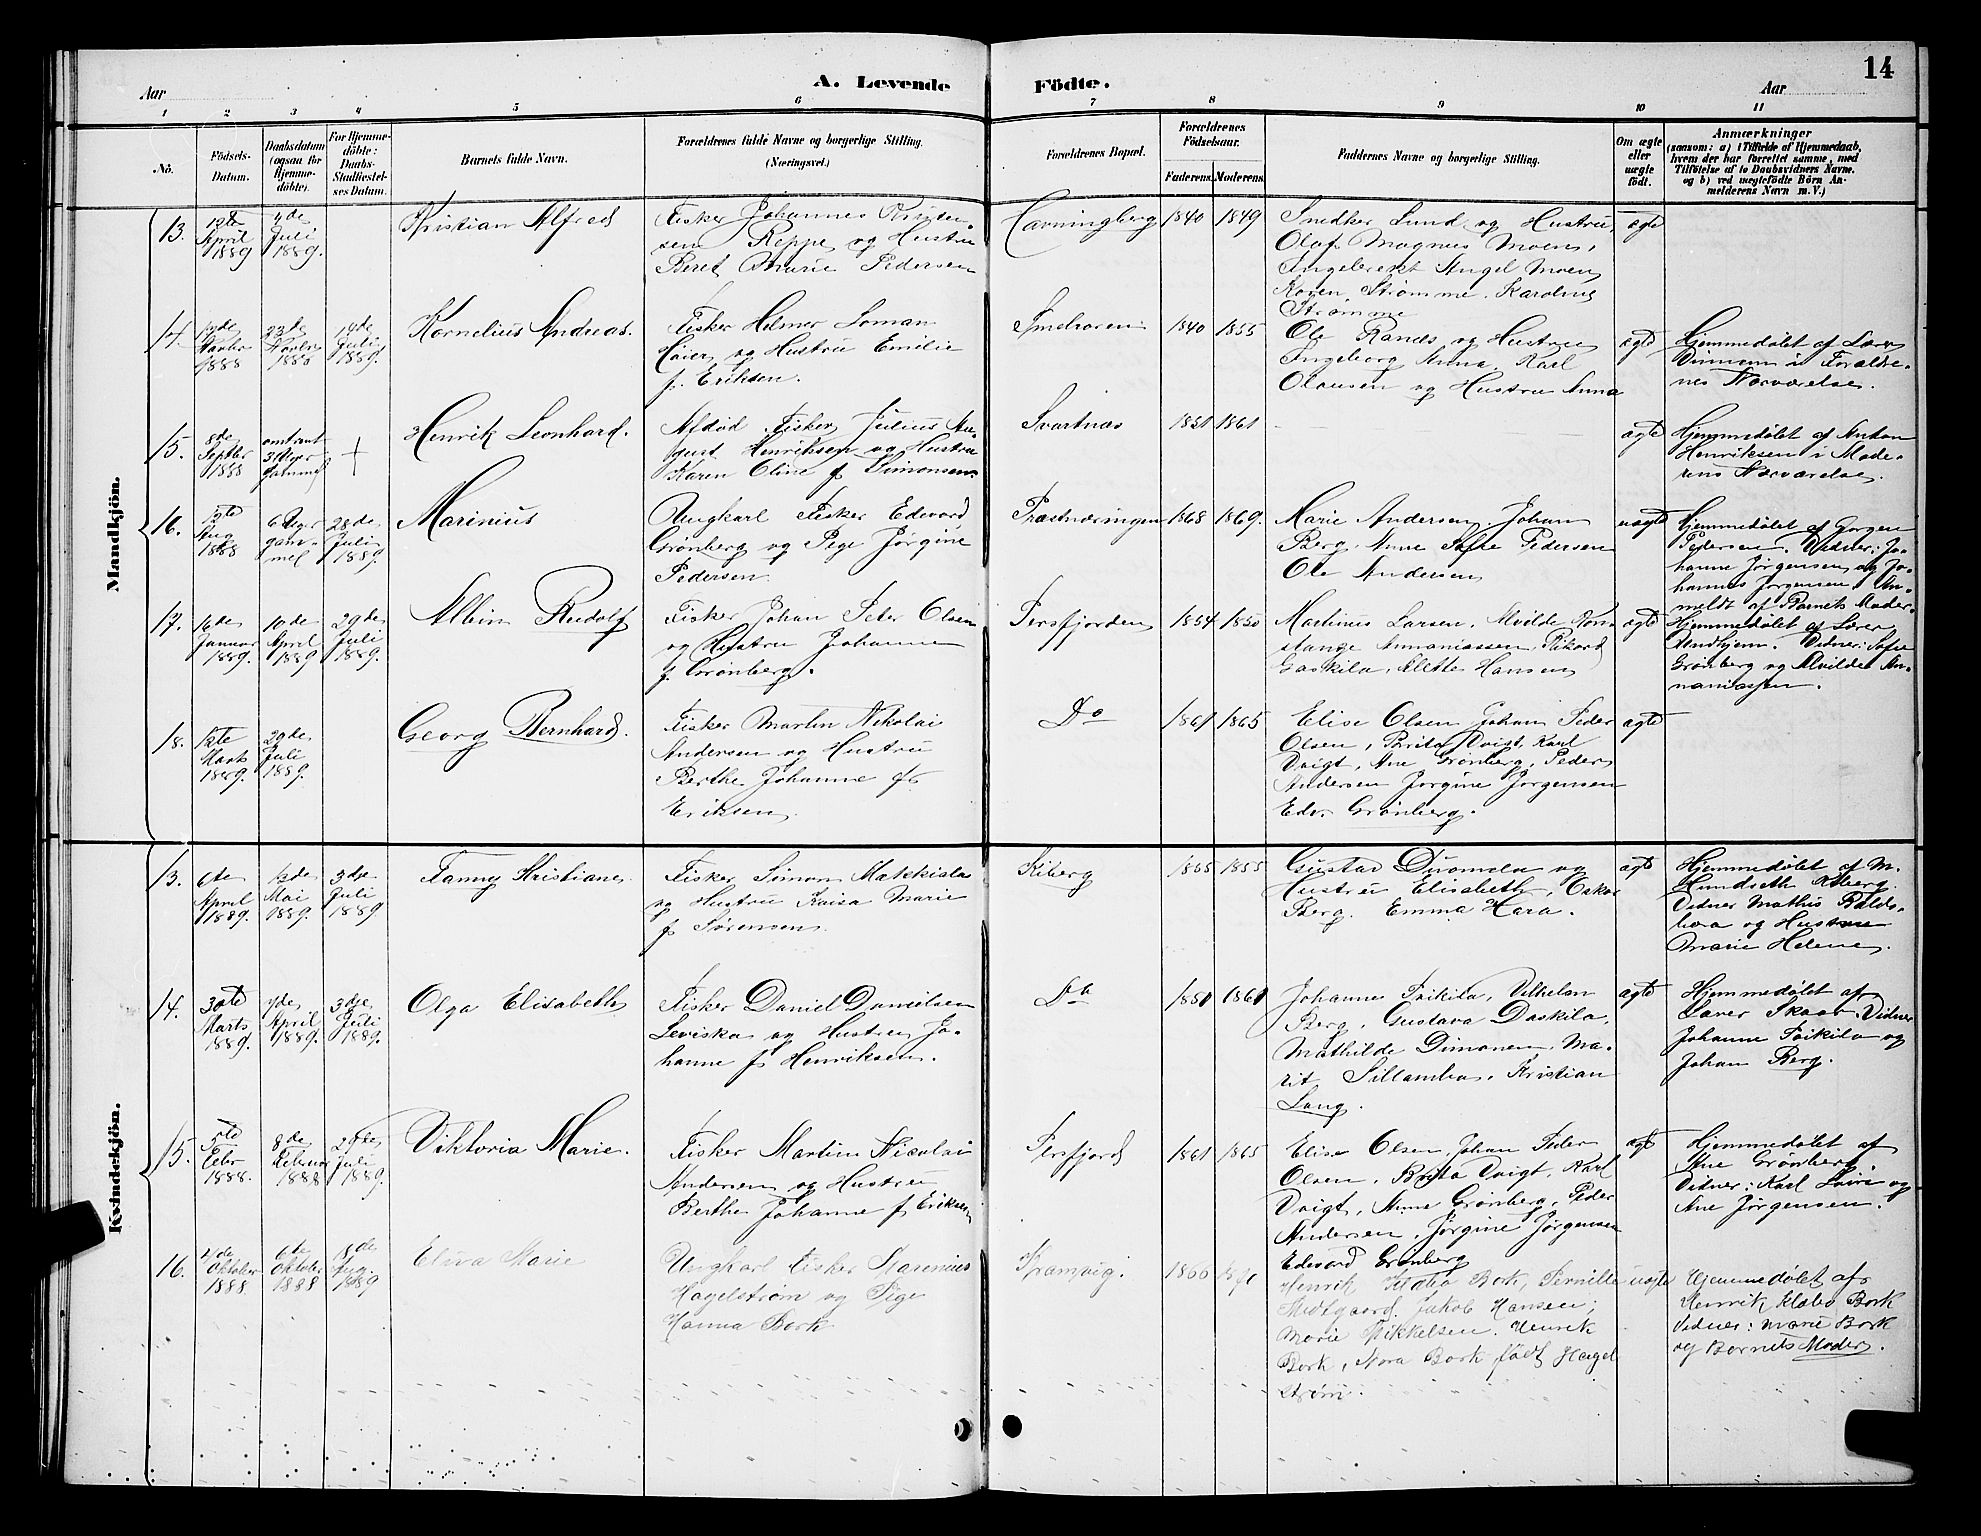 14
A. Levende Födte.
Aar
Aar
1 2 3 4 5 6 7 8 9 10 11
No.
Födsels-
Datum.
Daabsdatum
(ogsaa for
Hjemme-
döbte).
For Hjemme-
döbte:
Daabs-
Stadfæstel-
ses Datum.
Barnets fulde Navn.
Forældrenes fulde Navne og borgerlige Stilling.
(Næringsvei.)
Forældrenes Bopæl.
Forældrenes
Födselsaar.
Faderens. Moderens.
Faddernes Navne og borgerlige Stilling.
Om ægte
eller
uægte
født.
Anmærkninger
(saasom: a) i Tilfælde af Hjemmedaab,
hvem der har forrettet samme, med
Tilföielse af to Daabsvidners Navne.
og b) ved uægtefödte Börn An-
melderens Navn m. V.)
Mandkjön.
13.
April
1889
4de
Juli
1889.
Kristian Alfred
Fisker Johannes
sen Reppe og Hustru
Beret Marie Pedersen
1840
1849
Snedker Lund og Hustru,
Olaf Magnus Moen,
Engel Moen
Karen Strømme. Karoline
Strømme
ægte
14.
1888
23de
1888
14de
Juli
1889.
Kornelius Andreas.
Fisker Helmer
og Hustru Emilie
f. Eriksen.
1840
1855
Ole Ranes og Hustru
Ingeborg Anna. Karl
Olausen og Hustru Anna
ægte
Hjemmedøbt af Lærer
i Foraldre-
nes Nærværelse.
15.
8de
Septbr
1888
omtrent
3 Uger
gammel
+
Henrik Leonhard.
Afdød Fisker Julius Au-
gust Henriksen og Hustru
Karen Oline f Simonsen
Svartnæs
1851
1861
ægte
Hjemmedøbt af Anton
Henriksen i Mode-
rens Nærværelse.
16.
Aug
1888
6 Uger
gam-
mel
28de
Juli
1889.
Marinius
Ungkarl Fisker Edevard
Grønberg og Pige Jørgine
Pedersen
Præstnæringen
1868
1869.
Marie Andersen Johan
Berg. Anne Sofie Pedersen
Ole Andersen
uægte
Hjemmedøbt af Gørgen
Pedersen. Vidner: Jo-
hanne Jørgensen og Jo-
hannes Jørgensen An-
meldt af Barnets Moder.
17.
16de
Januar
1889.
10de
April
1889
29de
Juli
1889.
Albin Rudolf
Fisker Johan Peter Olsen
og Hustru Johanne
f. Grønberg.
Persfjorden
1854
1850
Martinus Larsen. Alvilde Kon-
stanze Annaniassen,
Gaskila, Elette Hansen
ægte
Hjemmedøbt af Lærer
Vidner: Sofie
Grønberg og Alvilde An-
naniassen.
18.
12te
Marts
1889.
29de
Juli
1889.
Georg Bernhard.
Fisker Martin Nikolai
Andersen og Hustru
Berthe Johanne f
Eriksen
Do
1861
1865
Elise Olsen Johan Peder
Olsen, Brita Voigt, Karl
Voigt, Ane Grønberg, Peder
Andersen Jørgine Jørgensen
Edv. Grønberg.
ægte
Kvindekjön.
13.
6te
April
1889.
Mai
1889.
3dje
Juli
1889
Fanny Kristiane
Fisker Simon Makkiala
og Hustru Kaisa Marie
f Sørensen
Kiberg
1855
1855
Gustav og
Hustru Elisabeth, Oskar
Berg. Emma Hara.
ægte
Hjemmedøbt af M.
Hundseth Kiberg.
Vidner Mathis
og Hustru
Marie Helene.
14.
30te
Marts
1889.
7de
April
1889.
3dje
Juli
1889.
Olga Elisabeth
Fisker Daniel Danielsen
Leviska og Hustru Jo-
hanne f Henriksen.
Do
1851
1861
Johanne Vilhelm
Berg, Gustava Daskila,
Mathilde Dimonen, Ma-
rit Kristian
Lang.
ægte
Hjemmedøbt af
Lærer Skaar. Vidner
Johanne og
Johan Berg.
15.
5te
Febr
1888.
8de
Februar
1888
29de
Juli
1889.
Viktoria Marie.
Fisker Martin Nicolai
Andersen og Hustru
Berthe Johanne f Eriksen
Persfjord
1861
1865
Elise Olsen Johan Peder
Olsen, Brita Voigt, Karl
Voigt, Anne Grønberg, Peder
Andersen, Jørgine Jørgensen
Edevard Grønberg
ægte
Hjemmedøbt af
Ane Grønberg.
Vidner: Karl og
Ane Jørgensen.
16.
4de
Oktober
1888.
6te
Oktober
1888
18de
Aug.
1889
Elina Marie
Ungkarl Fisker Marenius
Hagelstrøm og Pige
Hanna Bork
1866
Henrik Klæbo Bork, Pernille
Midtgaard, Jakob Hansen,
Marie Mikkelsen. Henrik
Bork, Nora Bork født Hagel
strøm.
uægte
Hjemmedøbt af
Henrik Klæbo Bork
Vidner: Marie Bork
og Barnets Moder.